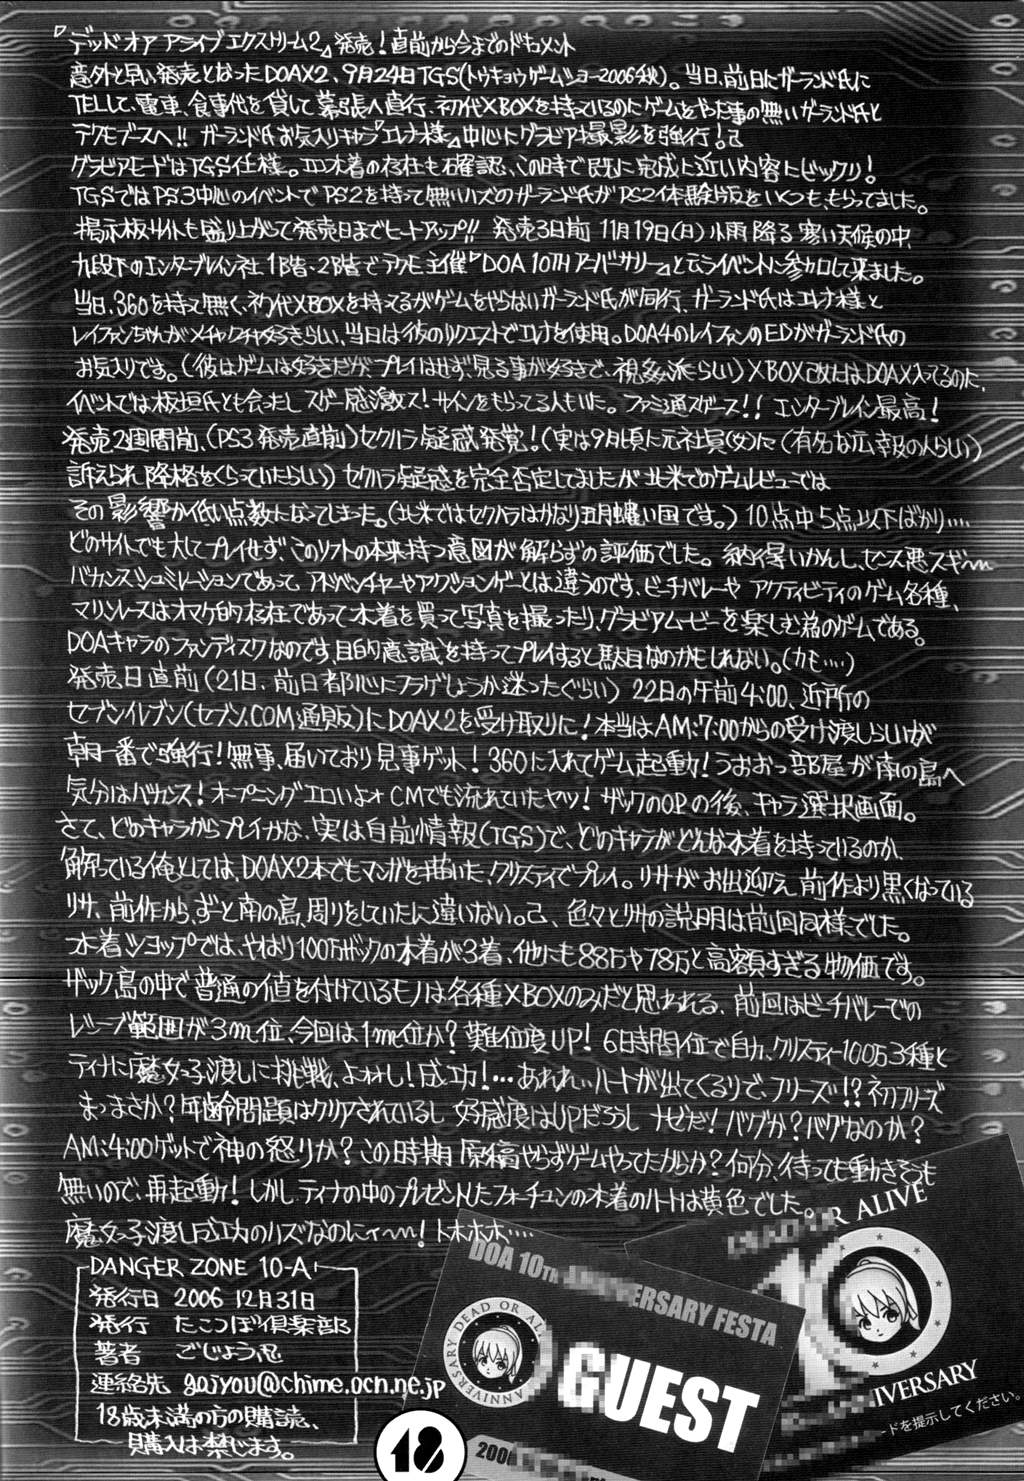 『デッドオアアライブエクストリーム2』発売!直前から今までのドキュメント
意外と早い発売となったDOAX2、9月24日TGS(トウキョウゲームショー2006秋)。当日、前日にガーランド氏に
TELして、電車、食事代を貸して幕張へ直行、初代XBOXを持っているのにゲームをやった事の無いガーランド氏と
テクモブースへ!!ガーランド氏お気入りキャラ『エレナ様』中心にグラビア撮影を強行!
グラビアモードはTGS仕様。エロ水着の存在も確認、この時で既に完成に近い内容にビックリ!
TGSではPS3中心のイベントでPS2を持って無いハズのガーランド氏がPS2体験版をいくつも、もらってました。
掲示板サイトも盛り上がって発売日までヒートアップ!!発売3日前 11月19日(日)小雨降る寒い天候の中、
九段下のエンターブレイン社1階、2階でテクモ主催『DOA 10THアニバーサリー』と云うイベントに参加して来ました。
当日、360を持って無く、初代XBOXを持ってるがゲームをやらないガーランド氏が同行、ガーランド氏はエレナ様と
レイファンちゃんがメチャクチャ好きらしい、当日は彼のリクエストでエレナを使用。DOA4のレイファンのEDがガーランド氏の
お気入りです。(彼はゲームは好きだが、プレイはせず、見る事が好きで、視姦派らしい)XBOX改にはDOAX入ってるのに、
イベントでは板垣氏とも会ったしスゲー感激ッス!サインをもらってる人もいた。ファミ通スゲース!!エンターブレイン最高!
発売2週間前、(PS3発売直前)セクハラ疑惑発覚!(実は9月頃に元社員(女)に(有名な広報の人らしい)
訴えられ降格をくらっていたらしい)セクハラ疑惑を完全否定してましたが北米でのゲームレビューでは
その影響か低い点数になってしまった。(北米ではセクハラはかなり五月蠅い国です。)10点中5点以下ばかり‥‥
どのサイトでも大してプレイせず、このソフトの本来持つ意図が解らずの評価でした。納得いかんし、センス悪スギ〜
バカンスシュミレーションであって、アドベンチャーやアクションゲーとは違うのです、ビーチバレーやアクティビティのゲーム各種、
マリンレースはオマケ的存在であって水着を買って写真を撮ったり、グラビアムービーを楽しむ為のゲームである。
DOAキャラのファンディスクなのです、目的意識を持ってプレイすると駄目なのかもしれない。(カモ‥‥)
発売日直前(21日、前日都心にフラゲしようか迷ったぐらい)22日の午前4:00、近所の
セブンイレブン(セブン.COM通販)にDOAX2を受け取りに!本当はAM:7:00からの受け渡しらしいが
朝一番で強行!無事、届いており見事ゲット!360に入れてゲーム起動!うおおっ部屋が南の島へ
気分はバカンス!オープニングエロいよォCMでも流れていたヤツ!ザックのOPの後、キャラ選択画面。
さて、どのキャラからプレイかな、実は自前情報(TGS)で、どのキャラがどんな水着を持っているのか、
解っている俺としては、DOAX2本でもマンガを描いた、クリスティでプレイ。リサがお出迎え、前作より黒くなっている
リサ、前作から、ずーと南の島、周りをしていたに違いない。色々とリサの説明は前回同様でした。
水着ショップでは、やはり100万ザックの水着が3着、他にも88万や78万と高額すぎる物価です。
ザック島の中で普通の値を付けているモノは各種XBOXのみだと思われる、前回はビーチバレーでの
レシーブ範囲が3m位、今回は1m位か?難位度UP!6日時間位で自力、クリスティー100万3種と
ティナに魔女っ子渡しに挑戦、よォォし!成功!…あれれぃハートが出てくるりで、フリーズ!?初フリーズ
まっまさか?年齢問題はクリアされているし好感度はUPだろうし ナゼだ!バグか?バグなのか?
AM:4:00ゲットで神の怒りか?この時期 原稿やらずゲームやってたからか?何分、待っても動きそうも
無いので、再起動!しかしティナの中のプレゼントしたフォーチュンの水着のハートは黄色でした。
魔女っ子渡し成功のハズなのにィ〜!トホホホ‥‥
DANGER ZONE 10-A
発行日 2006 12月31日
発行 たこつぼ倶楽部
著者 ごじょう忍
連絡先 gojyou@chime.ocn.ne.jp
18歳未満の方の購読、
購入は禁じます。
18
DOA 10TH ANNIVERSARY FESTA
DEAD OR ALIVE
ANNIVERSARY
GUEST
DEAD OR ALIVE
ANNIVERSARY
ードを提示してください。